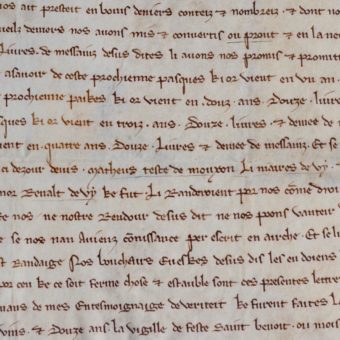 nos ait presteit en bouns deniers conteiz & nombreiz · & dont no
deniers nos avons mis & convertis ou prout & en la ne
Livres · de messains desus dites li avons nos promis & promet
asavoir de ceste prochienne pasques ki or vient en un an ·
prochienne paikes ki or vient en · douz · ans · Douze · livre
ques ki or vient en troiz · ans · Douze · livres · & demee de m
ent en · quatre ans · Douze · Livres & demee de messains · Et se
ci dezour devis · matheus teste de mouzon Li maires de vy · &
nor Renalt de vy ke fut · Li Randroient por nos come droi
ke nos · ne nostre Rendour desus dit · ne nos poons vanteir
se se nos nan Aviens conissance per escrit en airche · Et se l
st Randaige · Nos bouchairs Eveskes desus dis les en doiens
por ceu ke ce soit ferme chose & estauble sont ces presentes lettre
mans de mes Entesmoignaige de veriteit · ke furent faites L
vins · & Douze ans la vigille de feste saint benoit · ou mois